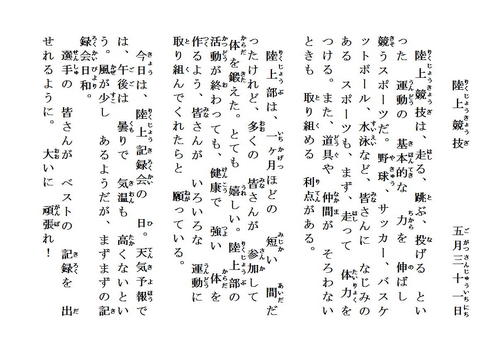 陸上競技　五月三十一日
陸上競技は、走る、跳ぶ、投げる　とい
った　運動の　基本的な　力を　伸ばし
競うスポーツだ。野球、サッカー、バスケ
ットボール、水泳など、皆さんに　なじみの
ある　スポーツも、まず、走って　体力を
つける。また、道具や　仲間が　そろわない
ときも　取り組める　利点がある。
陸上部は、一ヶ月ほどの　短い　間だ
ったけれど、多くの　皆さんが　参加して
体を鍛えた。とても　嬉しい。陸上部の
活動が終わっても、健康で　強い　体を
作るよう、皆さんが　いろいろな　運動に
取り組んでくれたらと　願っている。
今日は、陸上記録会の　日。天気予報で
は、午後は　曇りで　気温も　高くないとい
う。風が少し　あるようだが、まずまずの記
録会日和。
選手の　皆さんが　ベストの　記録を　出
せれるように。　大いに　頑張れ！